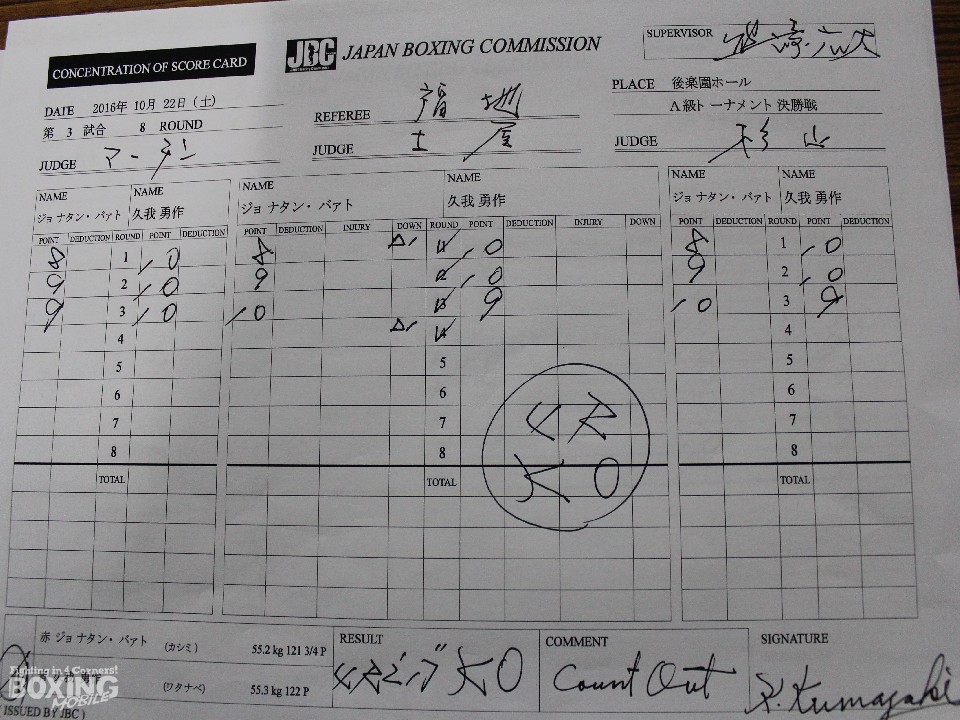 CONCENTRATION OF SCORE CARD
JBC JAPAN BOXING COMMISSION
SUPERVISOR
DATE 2016年 10月 22日（土）
PLACE 後楽園ホール
第 3 試合 8 ROUND
REFEREE 福地
A級トーナメント 決勝戦
JUDGE
JUDGE 土屋
JUDGE 杉山
NAME NAME NAME NAME NAME NAME
ジョナタン・バァト 久我 勇作 ジョナタン・バァト 久我 勇作 ジョナタン・バァト 久我 勇作
POINT DEDUCTION ROUND POINT DEDUCTION POINT DEDUCTION INJURY DOWN ROUND POINT DEDUCTION INJURY DOWN POINT DEDUCTION ROUND POINT DEDUCTION
8 1 10 8 1 10 8 1 10
9 2 10 9 2 10 9 2 10
9 3 10 10 3 9 10 3 9
4 4 4
5 5 5
6 6 6
7 7 7
8 8 8
4R
KO
TOTAL TOTAL TOTAL
赤 ジョナタン・バァト (カシミ) 55.2 kg 121 3/4 P
RESULT
COMMENT
SIGNATURE
(ワタナベ) 55.3 kg 122 P
KO
Count Out
K. Kumazaki
Fighting in 4 Corners!
BOXING
MOBILE
ISSUED BY JBC )